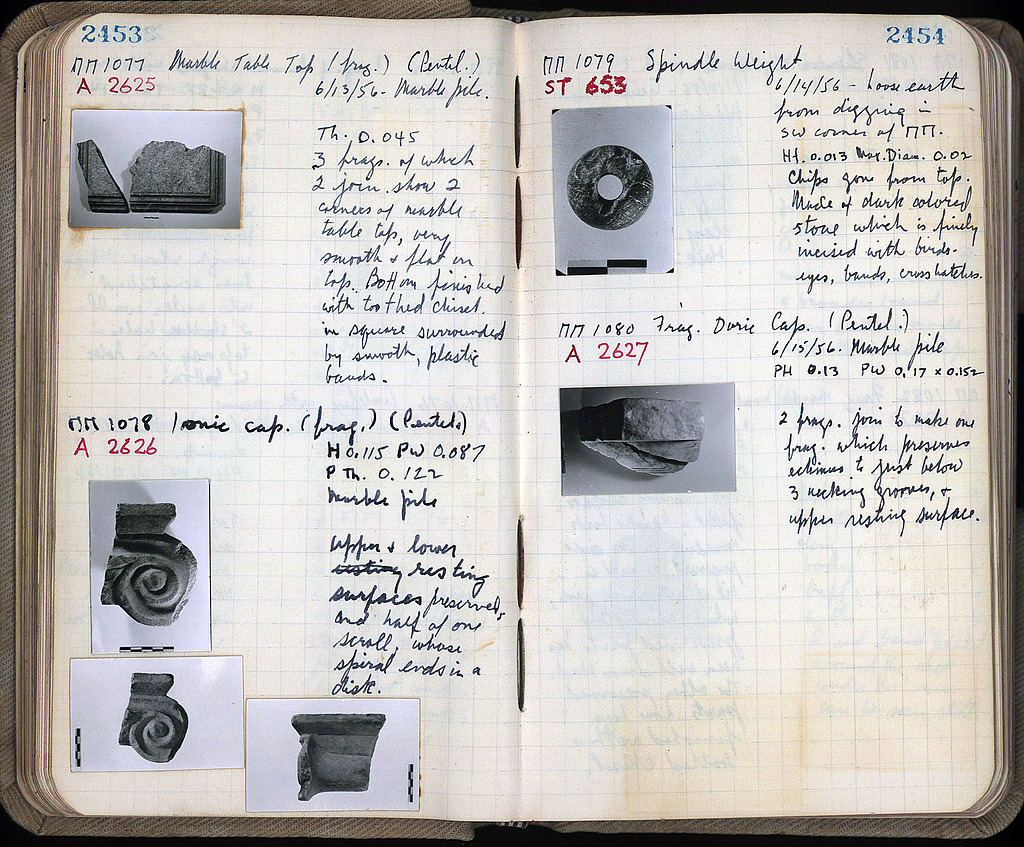 2453
ΠΠ 1077 Marble Table Top (frag.) (Pentel.)
A 2625 6/13/56 - Marble pile.
Th. 0.045
3 frags. of which
2 join. show 2
corners of marble
table top, very
smooth & flat on
top. Bottom finished
with toothed chisel.
in square surrounded
by smooth, plastic
bands.
ΠΠ 1078 Ionic cap. (frag.) (Pentel.)
A 2626 H 0.115 PW 0.087
P Th. 0.122
Marble pile
upper & lower
resting
surfaces preserved,
and half of one
scroll, whose
spiral ends in a
disk.
2454
ΠΠ 1079 Spindle Weight
ST 653 6/14/56 - Loose earth
from digging in
SW corner of ΠΠ.
Ht. 0.013 Max. Diam. 0.02
Chips gone from top.
Made of dark colored
stone which is finely
incised with birds-
eyes, bands, crosshatches.
ΠΠ 1080 Frag. Doric Cap. (Pentel.)
A 2627 6/15/56. Marble pile
PH 0.13 PW 0.17 x 0.152
2 frags. join to make one
frag. which preserves
echinus to just below
3 necking grooves, &
upper resting surface.